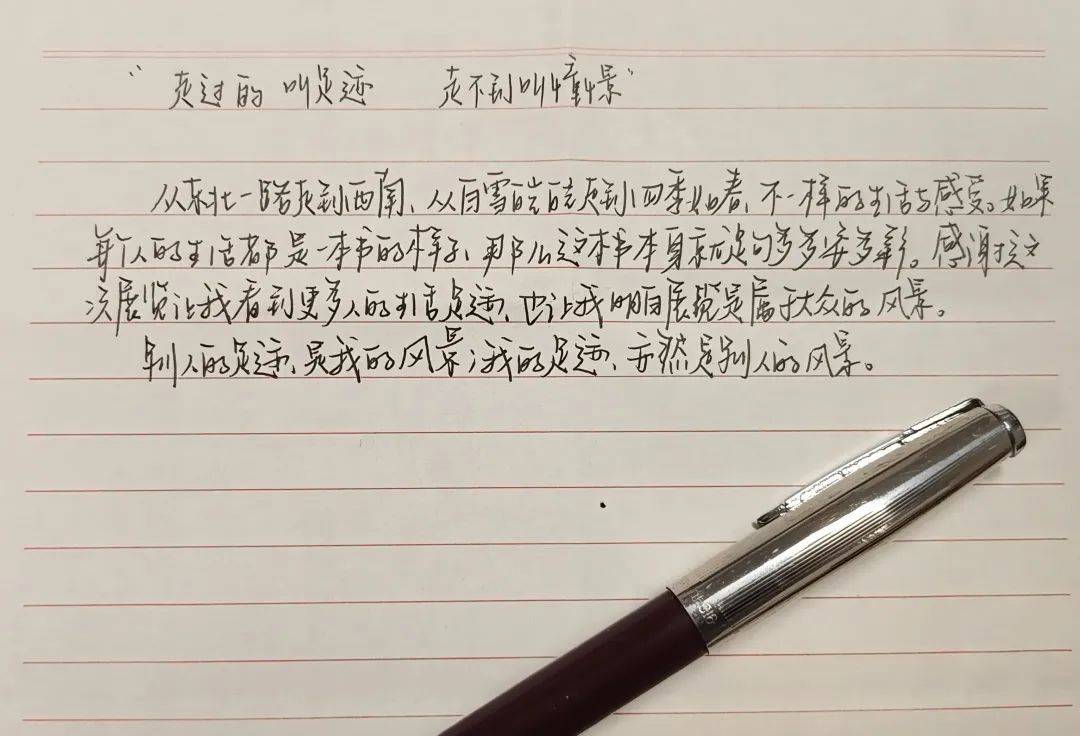 “走过的 叫足迹 走不到叫憧憬”
从东北一路走到西南、从白雪皑皑走到四季如春、不一样的生活与感受。如果
每个人的生活都是一本书的样子、那么这本书本身就足够多姿多彩。感谢这
次展览让我看到更多人的生活足迹、也让我明白展览是属于大众的风景。
别人的足迹、是我的风景；我的足迹、亦然是别人的风景。